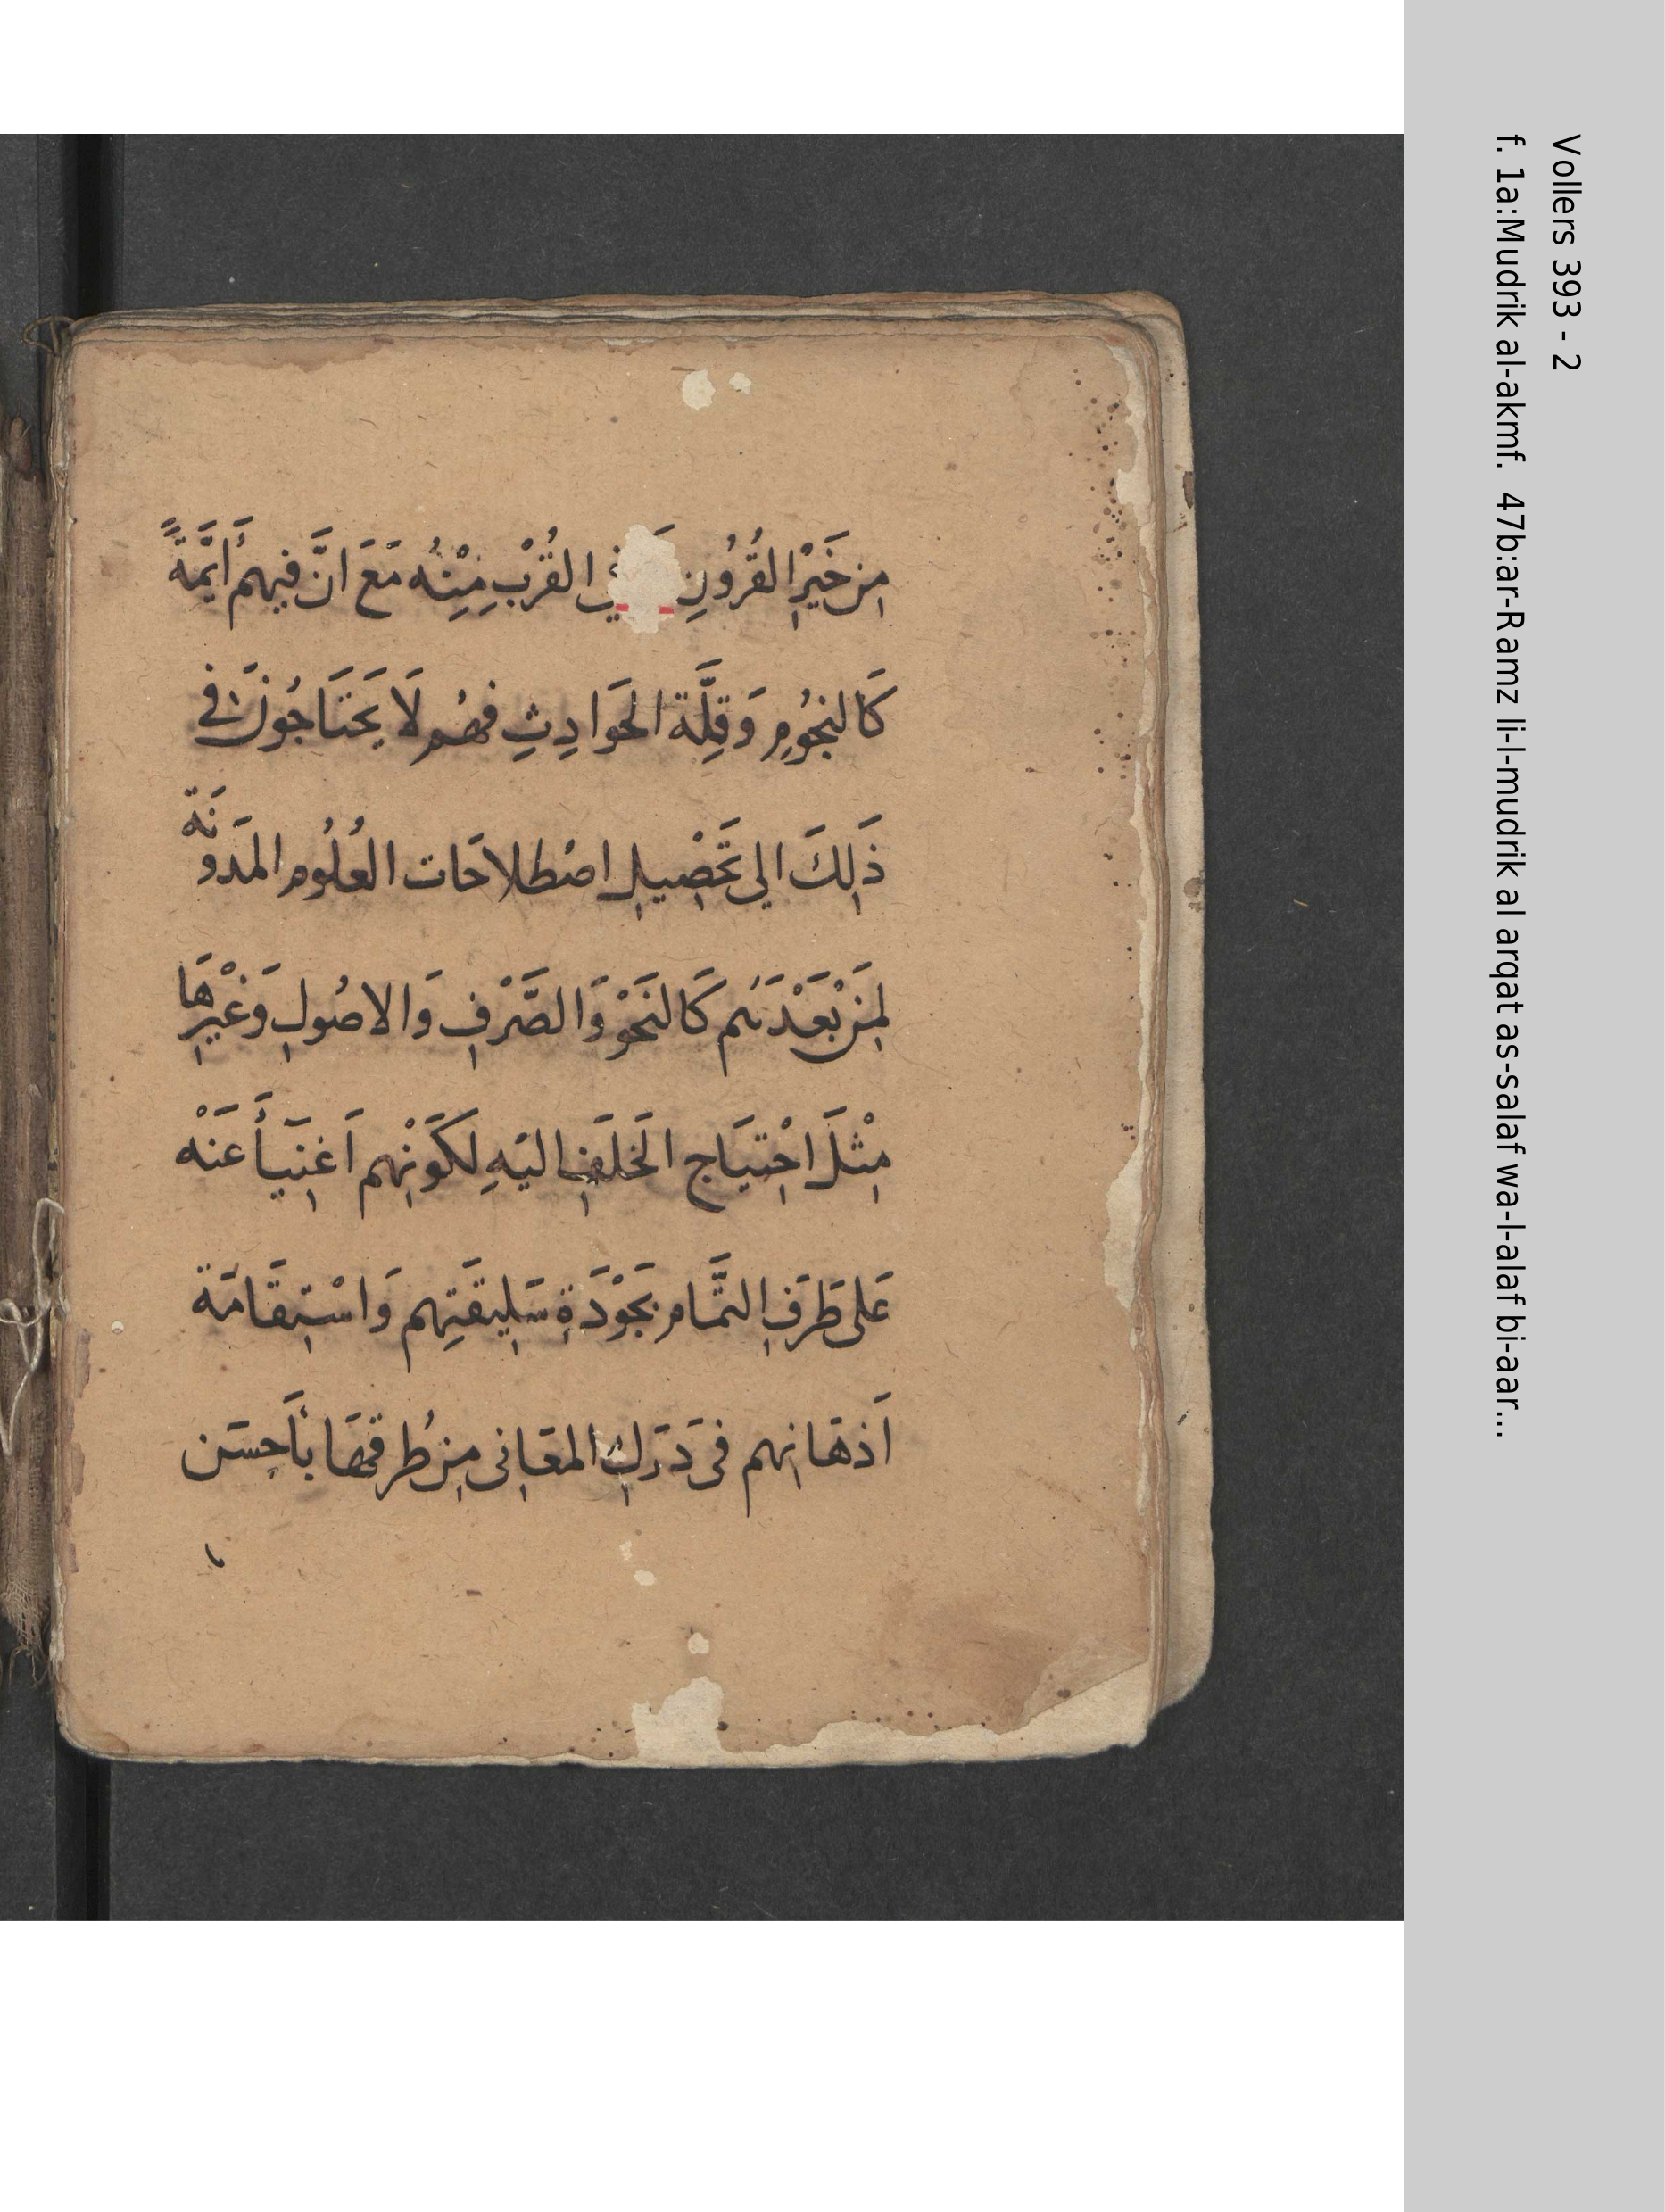 مِن خَيْرِ القُرُونِ في القُرْبِ مِنْهُ مَعَ انَّ فيهم أَيِمَّةً
كَالنجُومِ وَقِلَّة الحَوادِثِ فهُم لَا يَحتَاجُونَ في
ذَلِكَ الي تَحْصِيلِ اصْطلاحَات العُلُوم المدَونَة
لِمَن بَعْدَهُم كَالنَحْوِ وَالصَّرْفِ وَالاصُولِ وَغيْرِهَا
مِثْلَ احْتِيَاج الخَلَفِ اليَهِ لكَوْنِهم اَغنِيَاً عَنْه
عَلى طَرَفِ التمَّام بجَوْدَةِ سَلِيقَتِهم وَاسْتِقَامَة
اَذهَانِهم فى دَرَكِ المعَانِى مِن طُرقهَا بأَحِسَن
Vollers 393 - 2
f. 1a:Mudrik al-akmf. 47b:ar-Ramz li-l-mudrik al arqat as-salaf wa-l-alaf bi-aar...